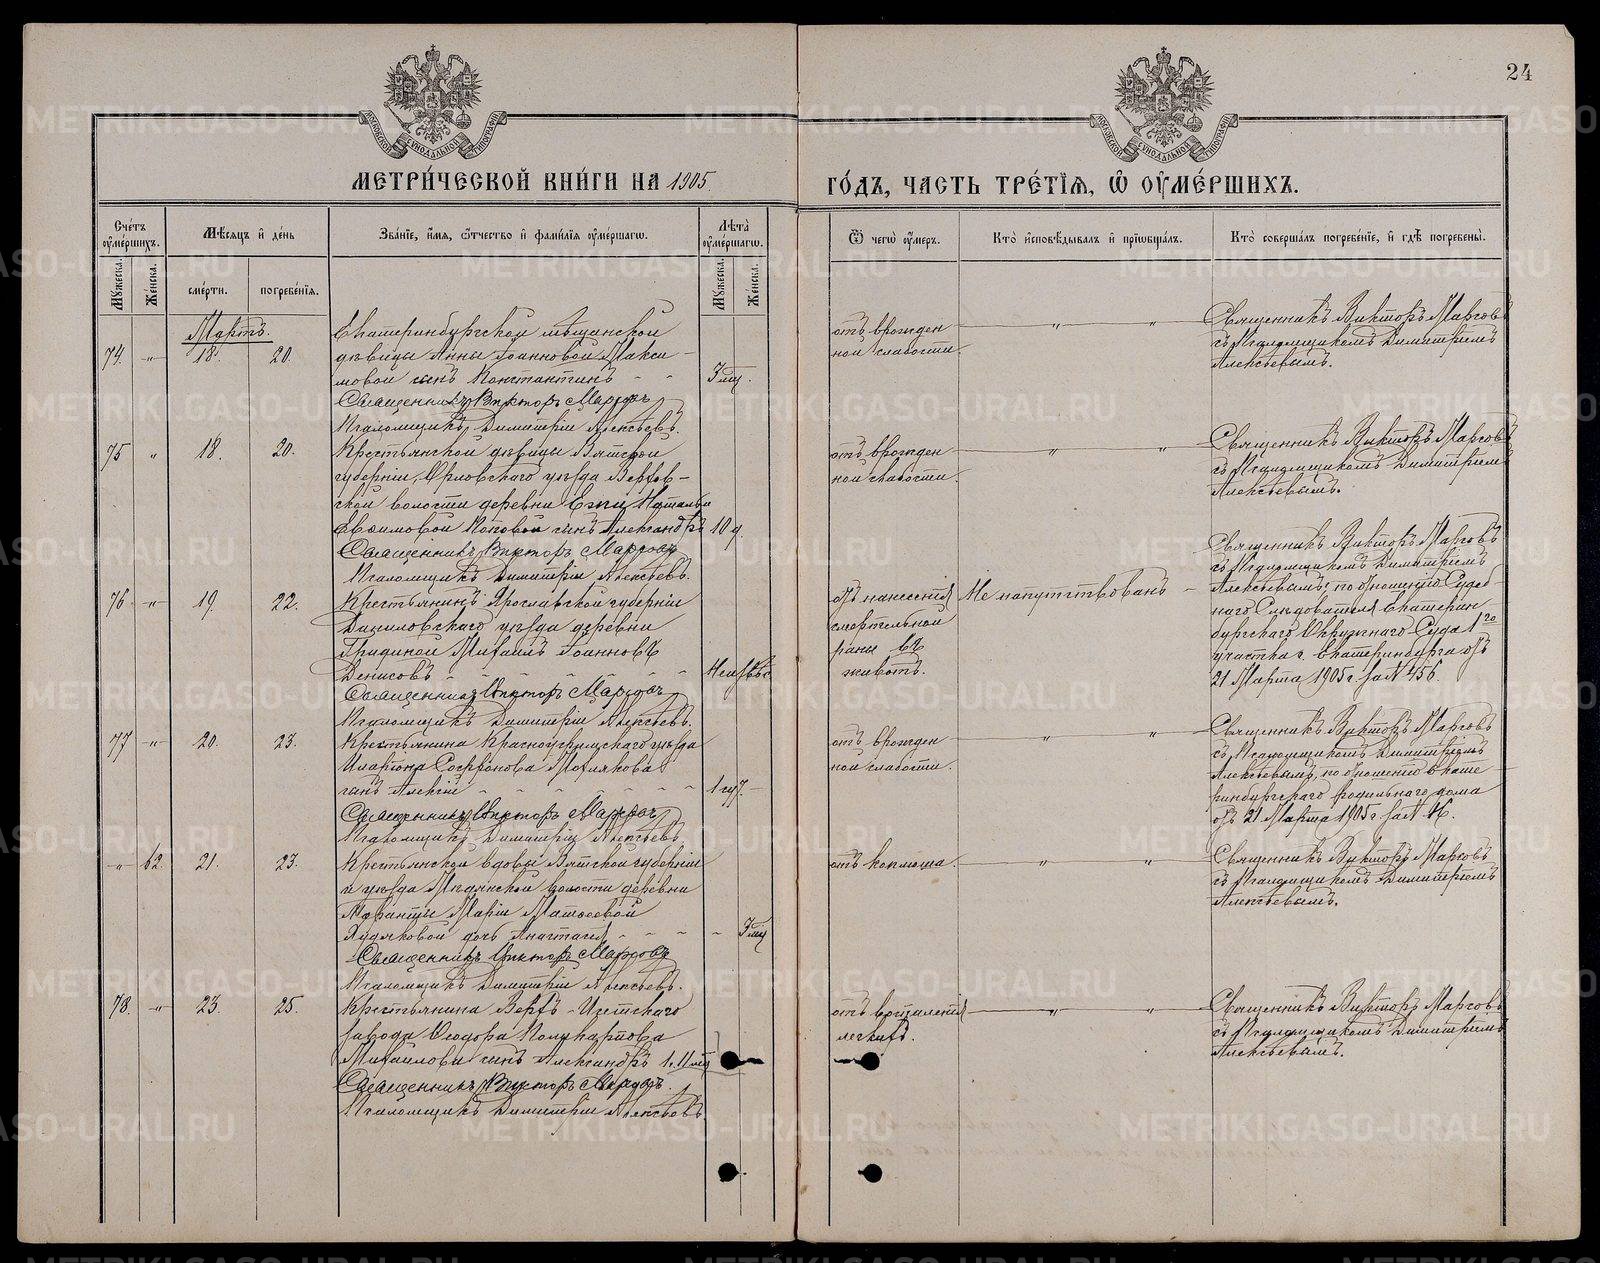 24
МОСКОВСКОЙ СѴНОДАЛЬНОЙ ТИПОГРАФІИ
МОСКОВСКОЙ СѴНОДАЛЬНОЙ ТИПОГРАФІИ
МЕТРИ́ЧЕСКОЙ КНИ́ГИ НА 1905
ГО́ДЪ, ЧАСТЬ ТРЕ́ТІѦ, Ѽ ОУМЕ́РШИХЪ.
Сче́тъ оумершихъ.
Мѣсяцъ и́ де́нь
Зва́нїе, и́мя, ѻ҆тчество и́ фами́лїя оуме́ршагѡ.
Лѣта̀ оуме́ршагѡ.
Ѿ чегѡ̀ оу́меръ.
Кто̀ и҆сповѣ́дывалъ и́ прїѡбща́лъ.
Кто̀ соверша́лъ погребе́нїе, и́ гдѣ̀ погребены̀.
Мꙋ́жеска.
Же́нска.
сме́рти.
погребе́нїя.
Мꙋ́жеска.
Же́нска.
Мартъ.
74. -"- 18. 20.
Екатеринбургской мѣщанской
дѣвицы Анны Іоанновой Макси-
мовой сынъ Константинъ - - 3 мц.
Священникъ Викторъ
Псаломщикъ Димитрій Алексѣевъ.
отъ врожден
ной слабости.
Священникъ Викторъ
съ Псаломщикомъ Димитріемъ
Алексѣевымъ.
75 " 18. 20.
Крестьянской дѣвицы Вятской
губерніи, Орловскаго уѣзда
ской волости деревни Наталіи
Евѳимовой Поповой сынъ Александръ 10 д.
Священникъ Викторъ
Псаломщикъ Димитрій Алексѣевъ.
отъ врожден
ной слабости.
Священникъ Викторъ
съ Псаломщикомъ Димитріемъ
Алексѣевымъ.
76. -"- 19. 22.
Крестьянинъ Ярославской губерніи
Даниловскаго уѣзда деревни
Гридиной Михаилъ Іоанновъ
Денисовъ - - - - - Неизвѣс.
Священникъ Викторъ
Псаломщикъ Димитрій Алексѣевъ.
отъ нанесенія
смертельной
раны въ
животъ.
Не напутствованъ -
Священникъ Викторъ
съ Псаломщикомъ Димитріемъ
Алексѣевымъ, по отношенію Судеб
наго Слѣдователя Екатерин
бургскаго Окружнаго Суда 1го
участка г. Екатеринбурга отъ
21 Марта 1905 г. за № 456.
77 -"- 20. 23.
Крестьянина Красноуфимскаго уѣзда
Иларіона Софронова
сынъ Алексій - - - - - -
Священникъ Викторъ
Псаломщикъ Димитрій Алексѣевъ.
отъ врожден
ной слабости.
Священникъ Викторъ
съ Псаломщикомъ Димитріемъ
Алексѣевымъ, по отношенію Екате
ринбургскаго родильнаго дома
отъ 21 Марта 1905 г. за №
" 62. 21. 23.
Крестьянской вдовы Вятской губерніи
и уѣзда волости деревни
Маріи Матѳеевой
Худяковой дочь Анастасія - - - - 3 мц
Священникъ Викторъ
Псаломщикъ Димитрій Алексѣевъ.
отъ коклюша.
Священникъ Викторъ
съ Псаломщикомъ Димитріемъ
Алексѣевымъ.
78. -"- 23. 25.
Крестьянина Верхъ-Исетскаго
завода Ѳеодора Поликарпова
Михайлова сынъ Александръ 1 г. 11 мц
Священникъ Викторъ
Псаломщикъ Димитрій Алексѣевъ
отъ воспаленія
легкихъ.
Священникъ Викторъ
съ Псаломщикомъ Димитріемъ
Алексѣевымъ.
METRIKI.GASO-URAL.RU